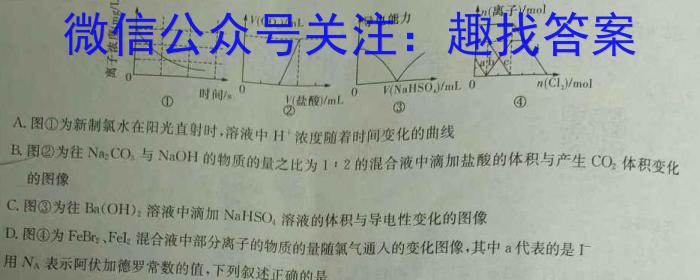 微信公众号关注：趣找答案
时间/s
V(盐酸)/mL
V(NaHSO₄)/mL
n(Cl₂)/mol
① ② ③ ④
A. 图①为新制氯水在阳光直射时,溶液中 H⁺ 浓度随着时间变化的曲线
B. 图②为往 Na₂CO₃ 与 NaOH 的物质的量之比为 1∶2 的混合液中滴加盐酸的体积与产生 CO₂ 体积变化
的图像
C. 图③为往 Ba(OH)₂ 溶液中滴加 NaHSO₄ 溶液的体积与导电性变化的图像
D. 图④为 FeBr₂、FeI₂ 混合液中部分离子的物质的量随氯气通入的变化图像,其中 a 代表的是 I⁻
用 N_A 表示阿伏加德罗常数的值,下列叙述正确的是